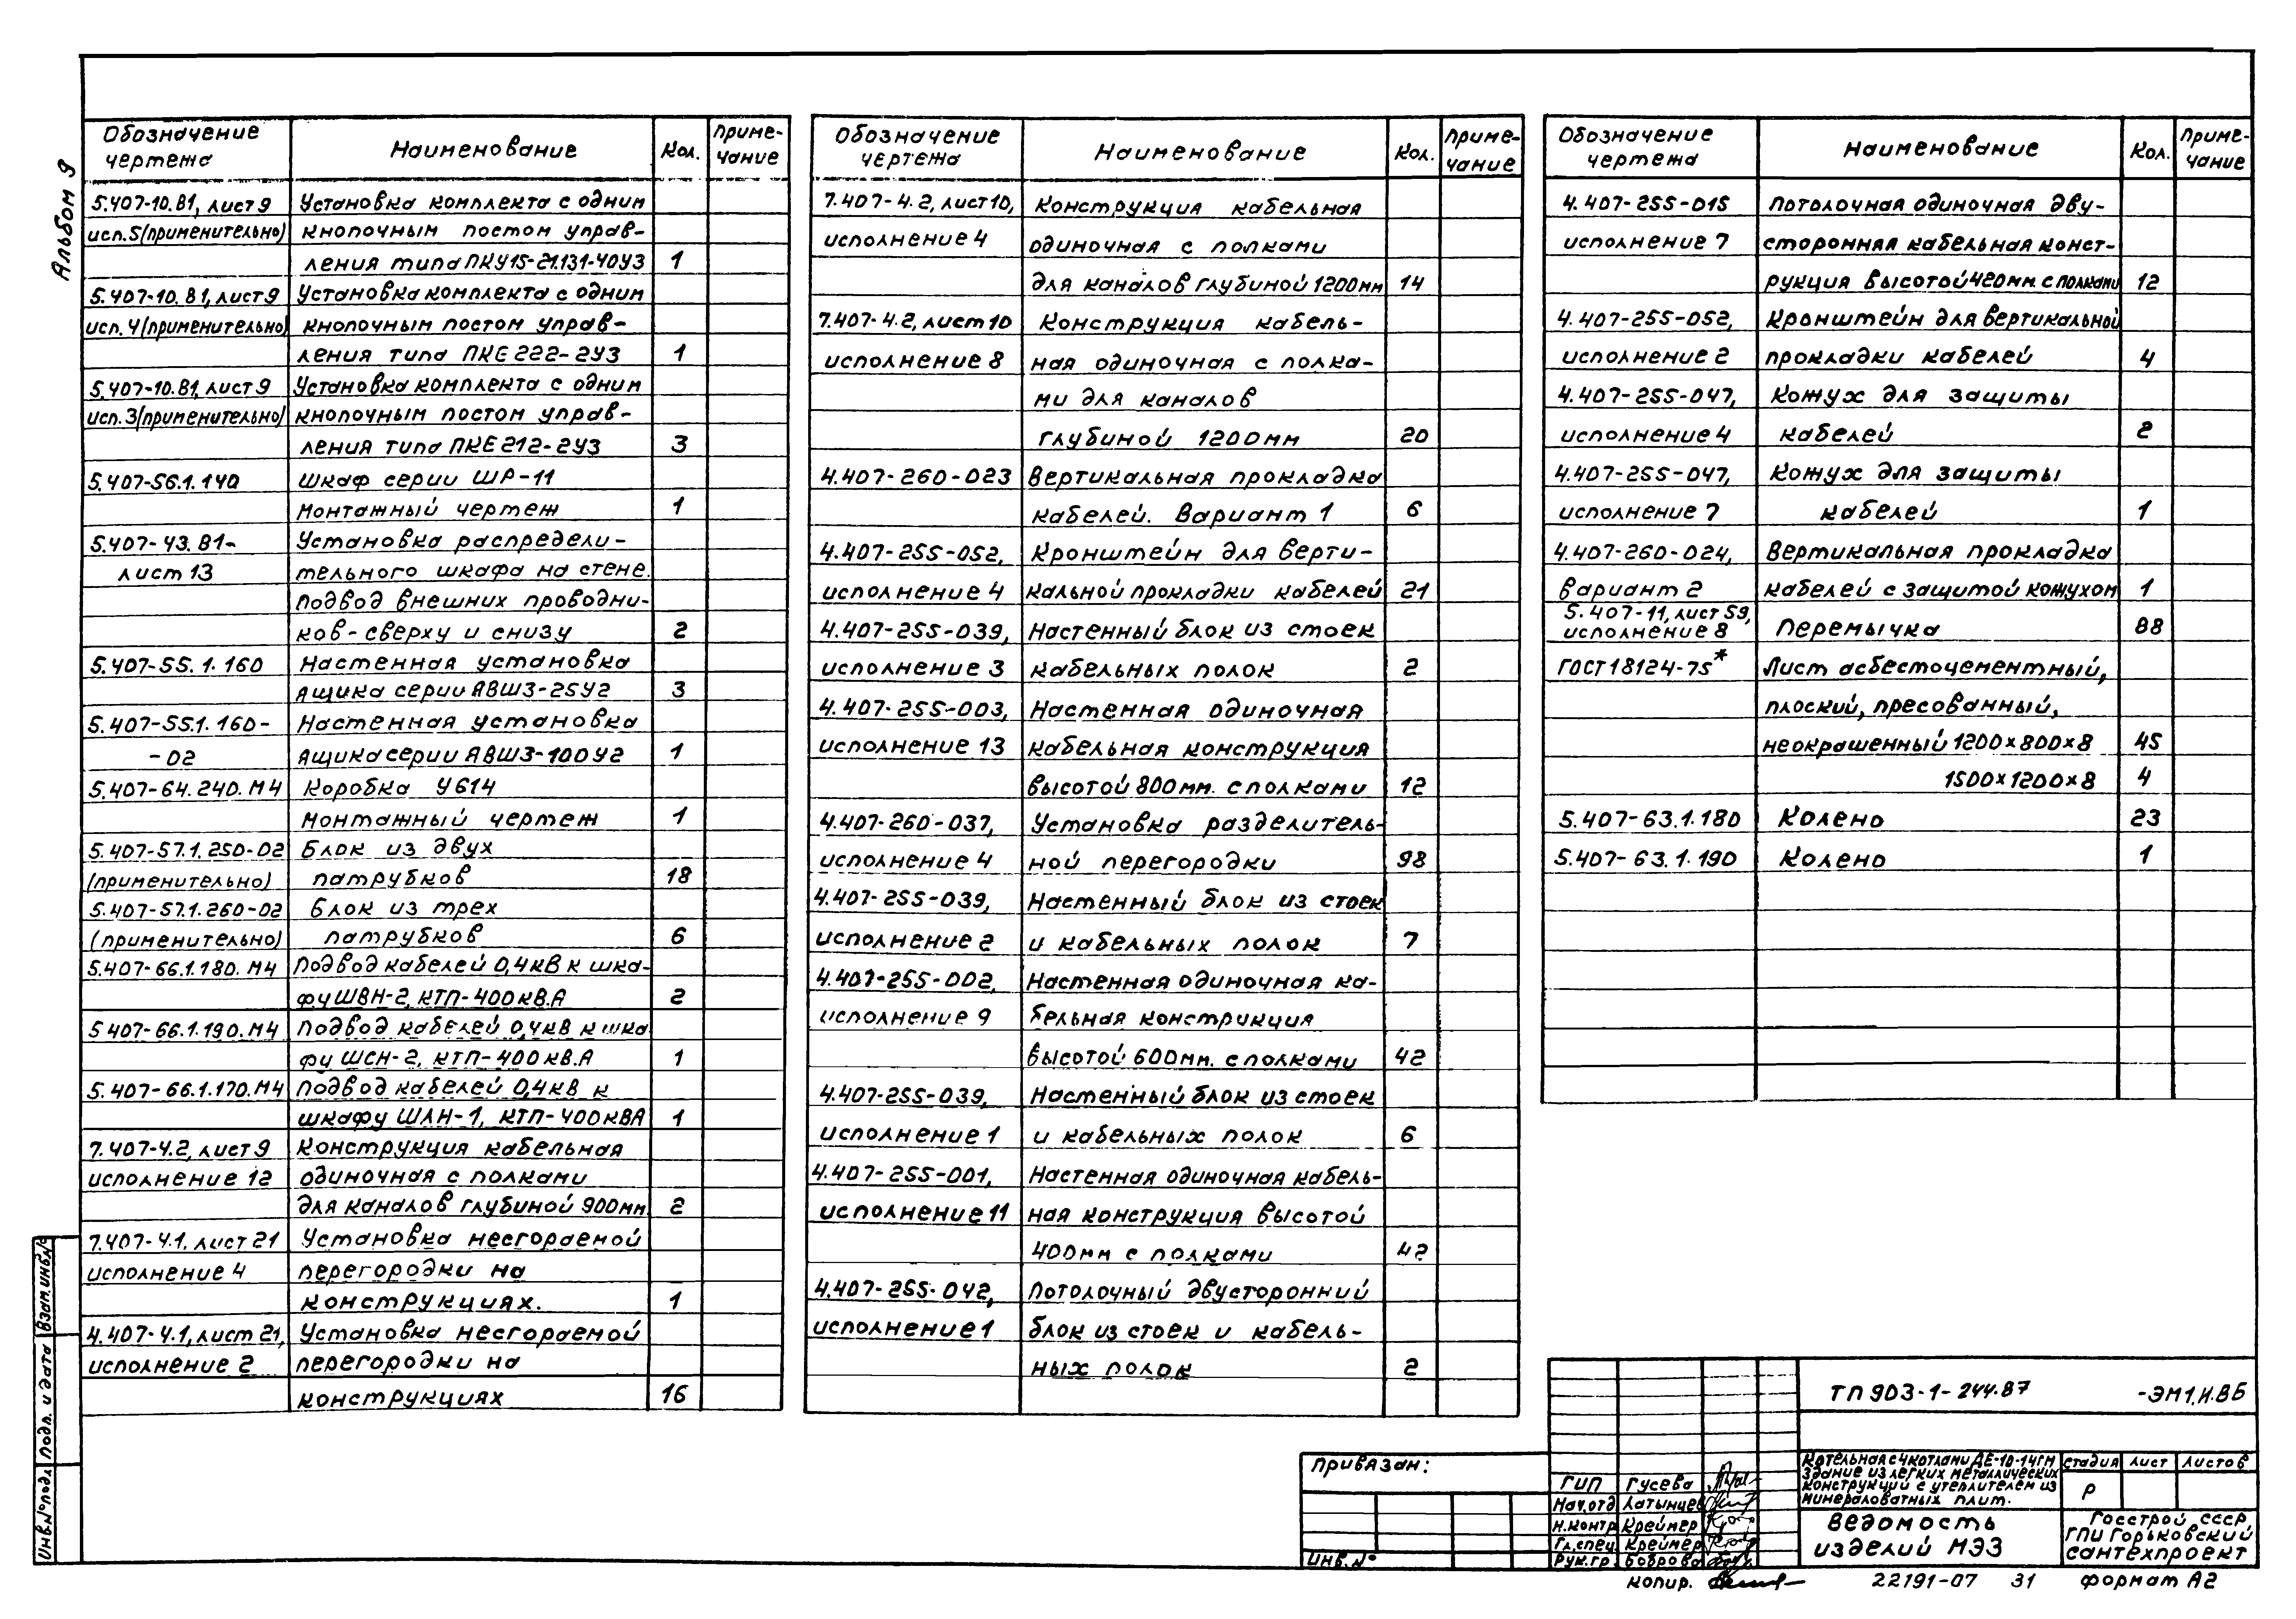 Альбом 9
Обозначение чертежа Наименование Кол. Приме-чание
5.407-10.В1, лист 9 Установка комплекта с одним
исп.5(применительно) кнопочным постом управ-
ления типа ПКУ15-21.131-40У3 1
5.407-10.В1, лист 9 Установка комплекта с одним
исп.4(применительно) кнопочным постом управ-
ления типа ПКЕ 222-2У3 1
5.407-10.В1, лист 9 Установка комплекта с одним
исп.3(применительно) кнопочным постом управ-
ления типа ПКЕ 212-2У3 3
5.407-56.1.140 Шкаф серии ШР-11
Монтажный чертеж 1
5.407-43.В1- Установка распредели-
лист 13 тельного шкафа на стене.
Подвод внешних проводни-
ков-сверху и снизу 2
5.407-55.1.160 Настенная установка
ящика серии ЯВШ3-25У2 3
5.407-55.1.160- Настенная установка
-02 ящика серии ЯВШ3-100У2 1
5.407-64.240.М4 Коробка У614
Монтажный чертеж 1
5.407-57.1.250-02 Блок из двух
(применительно) патрубков 18
5.407-57.1.260-02 Блок из трех
(применительно) патрубков 6
5.407-66.1.180.М4 Подвод кабелей 0,4кВ к шка-
фу ШВН-2, КТП-400кВ.А 2
5.407-66.1.190.М4 Подвод кабелей 0,4кВ к шка
фу ШСН-2, КТП-400кВ.А 1
5.407-66.1.170.М4 Подвод кабелей 0,4кВ к
шкафу ШЛН-1, КТП-400кВА 1
7.407-4.2, лист 9 Конструкция кабельная
исполнение 12 одиночная с полками
для каналов глубиной 900мм. 2
7.407-4.1, лист 21 Установка несгораемой
исполнение 4 перегородки на
конструкциях. 1
4.407-4.1, лист 21, Установка несгораемой
исполнение 2 перегородки на
конструкциях 16
Обозначение чертежа Наименование Кол. Приме-чание
7.407-4.2, лист 10, Конструкция кабельная
исполнение 4 одиночная с полками
для каналов глубиной 1200мм 14
7.407-4.2, лист 10 Конструкция кабель-
исполнение 8 ная одиночная с полка-
ми для каналов
глубиной 1200мм 20
4.407-260-023 Вертикальная прокладка
кабелей. Вариант 1 6
4.407-255-052, Кронштейн для верти-
исполнение 4 кальной прокладки кабелей 21
4.407-255-039, Настенный блок из стоек
исполнение 3 кабельных полок 2
4.407-255-003, Настенная одиночная
исполнение 13 кабельная конструкция
высотой 800мм. с полками 12
4.407-260-037, Установка разделитель-
исполнение 4 ной перегородки 98
4.407-255-039, Настенный блок из стоек
исполнение 2 и кабельных полок 7
4.407-255-002, Настенная одиночная ка-
исполнение 9 бельная конструкция
высотой 600мм. с полками 42
4.407-255-039, Настенный блок из стоек
исполнение 1 и кабельных полок 6
4.407-255-001, Настенная одиночная кабель-
исполнение 11 ная конструкция высотой
400мм с полками 42
4.407-255-042, Потолочный двусторонний
исполнение 1 блок из стоек и кабель-
ных полок 2
Обозначение чертежа Наименование Кол. Приме-чание
4.407-255-015 Потолочная одиночная дву-
исполнение 7 сторонняя кабельная конст-
рукция высотой 420мм. с полками 12
4.407-255-052, Кронштейн для вертикальной
исполнение 2 прокладки кабелей 4
4.407-255-047, Кожух для защиты
исполнение 4 кабелей 2
4.407-255-047, Кожух для защиты
исполнение 7 кабелей 1
4.407-260-024, Вертикальная прокладка
вариант 2 кабелей с защитой кожухом 1
5.407-11, лист 59,
исполнение 8 Перемычка 88
ГОСТ 18124-75* Лист асбестоцементный,
плоский, пресованный,
неокрашенный 1200×800×8 45
1500×1200×8 4
5.407-63.1.180 Колено 23
5.407-63.1.190 Колено 1
Взам.инв.№
Подп. и дата
Инв.№подл
Привязан:
Инв.№
ТП 903-1-244.87 -ЭМ1.И.ВБ
Котельная с 4 котлами ДЕ-10-14ГМ
Здание из легких металлических
конструкций с утеплителем из
минераловатных плит.
Стадия Лист Листов
Р
ГИП Гусева
Нач.отд Латынцев
Н.контр Креймер
Гл.спец. Креймер
Рук.гр. Боброва
Ведомость
изделий МЭЗ
Госстрой СССР
ГПИ Горьковский
Сантехпроект
Копир.
22191-07 31 формат А2